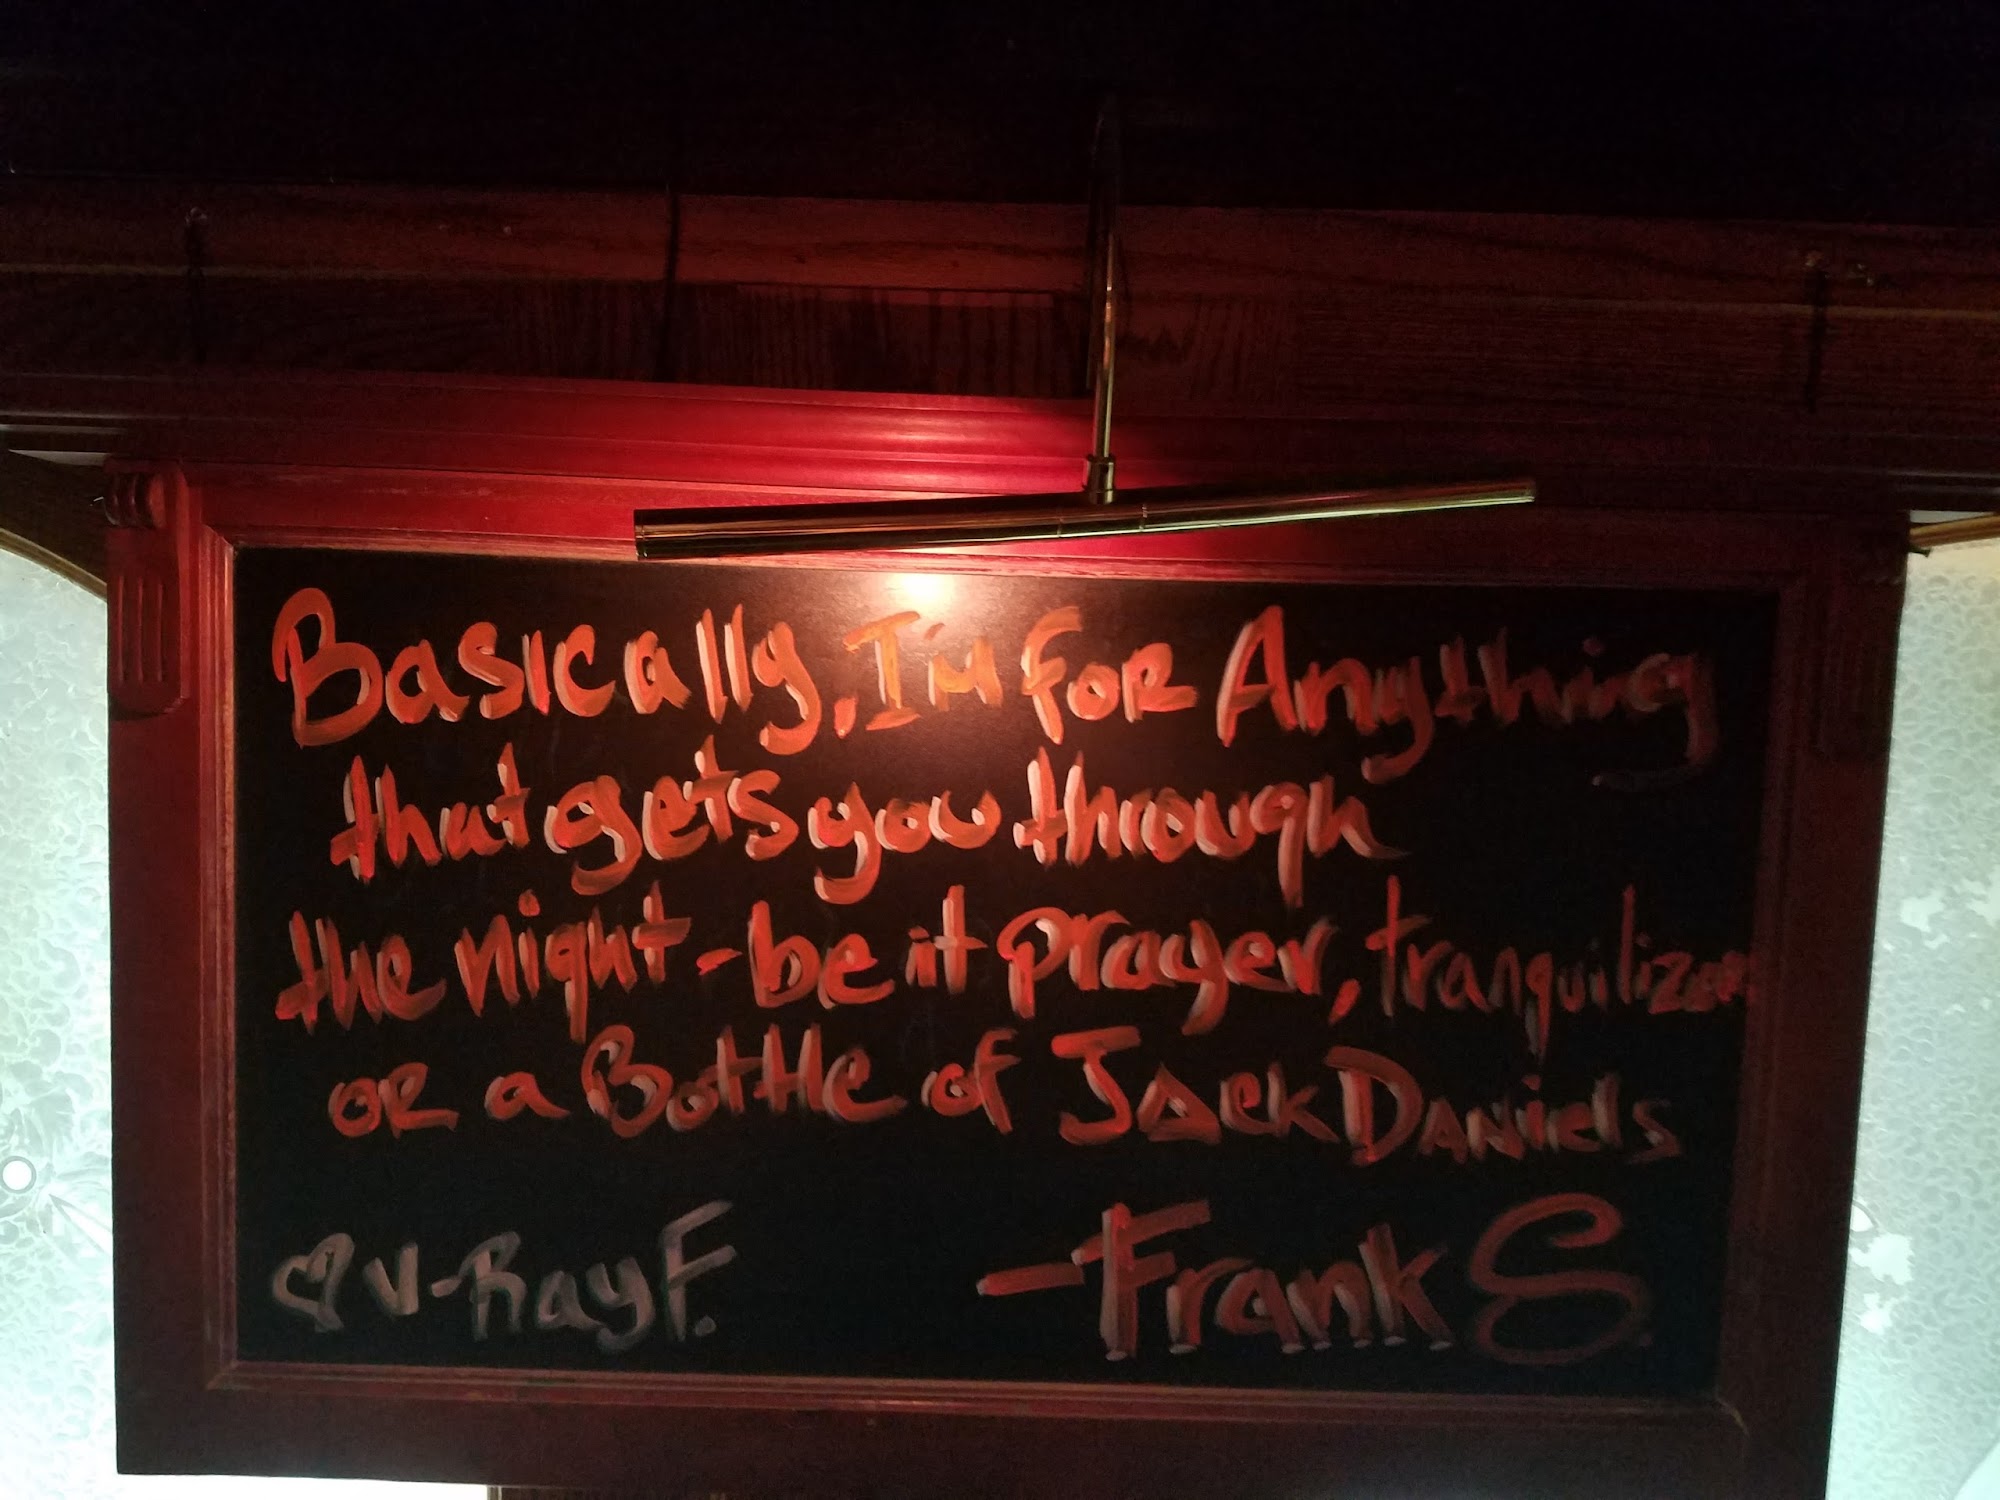 Basically, I'm for Anything
that gets you through
the night - be it prayer, tranquilizers
or a Bottle of Jack Daniels
♡ V-Ray F.
- Frank S.